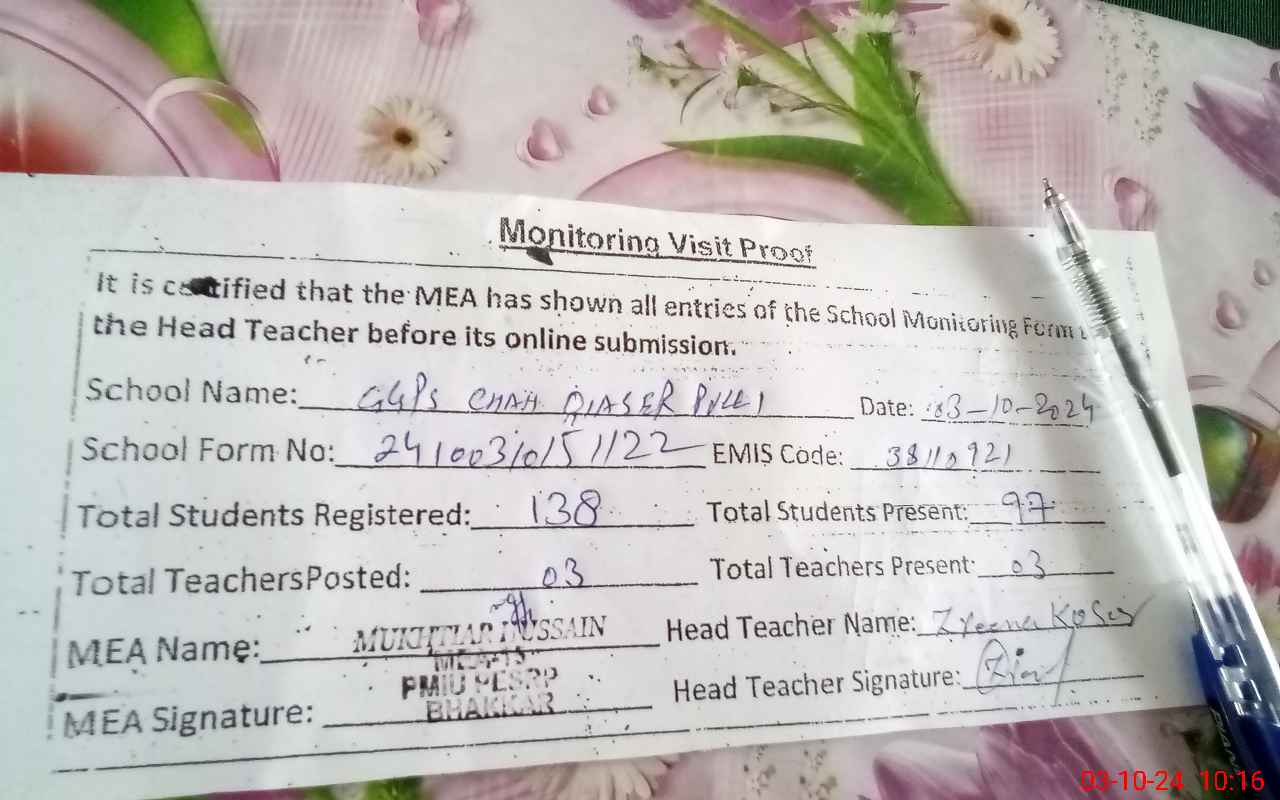 Monitoring Visit Proof
It is certified that the MEA has shown all entries of the School Monitoring Form
the Head Teacher before its online submission.
School Name: GGPS CHAH QIASER PULLI Date: 03-10-2024
School Form No: 24100310151122 EMIS Code: 38110921
Total Students Registered: 138 Total Students Present: 97
Total TeachersPosted: 03 Total Teachers Present: 03
MEA Name: MUKHTIAR HUSSAIN Head Teacher Name:
PMIU PESRP
MEA Signature: BHAKKAR Head Teacher Signature:
03-10-24 10:16